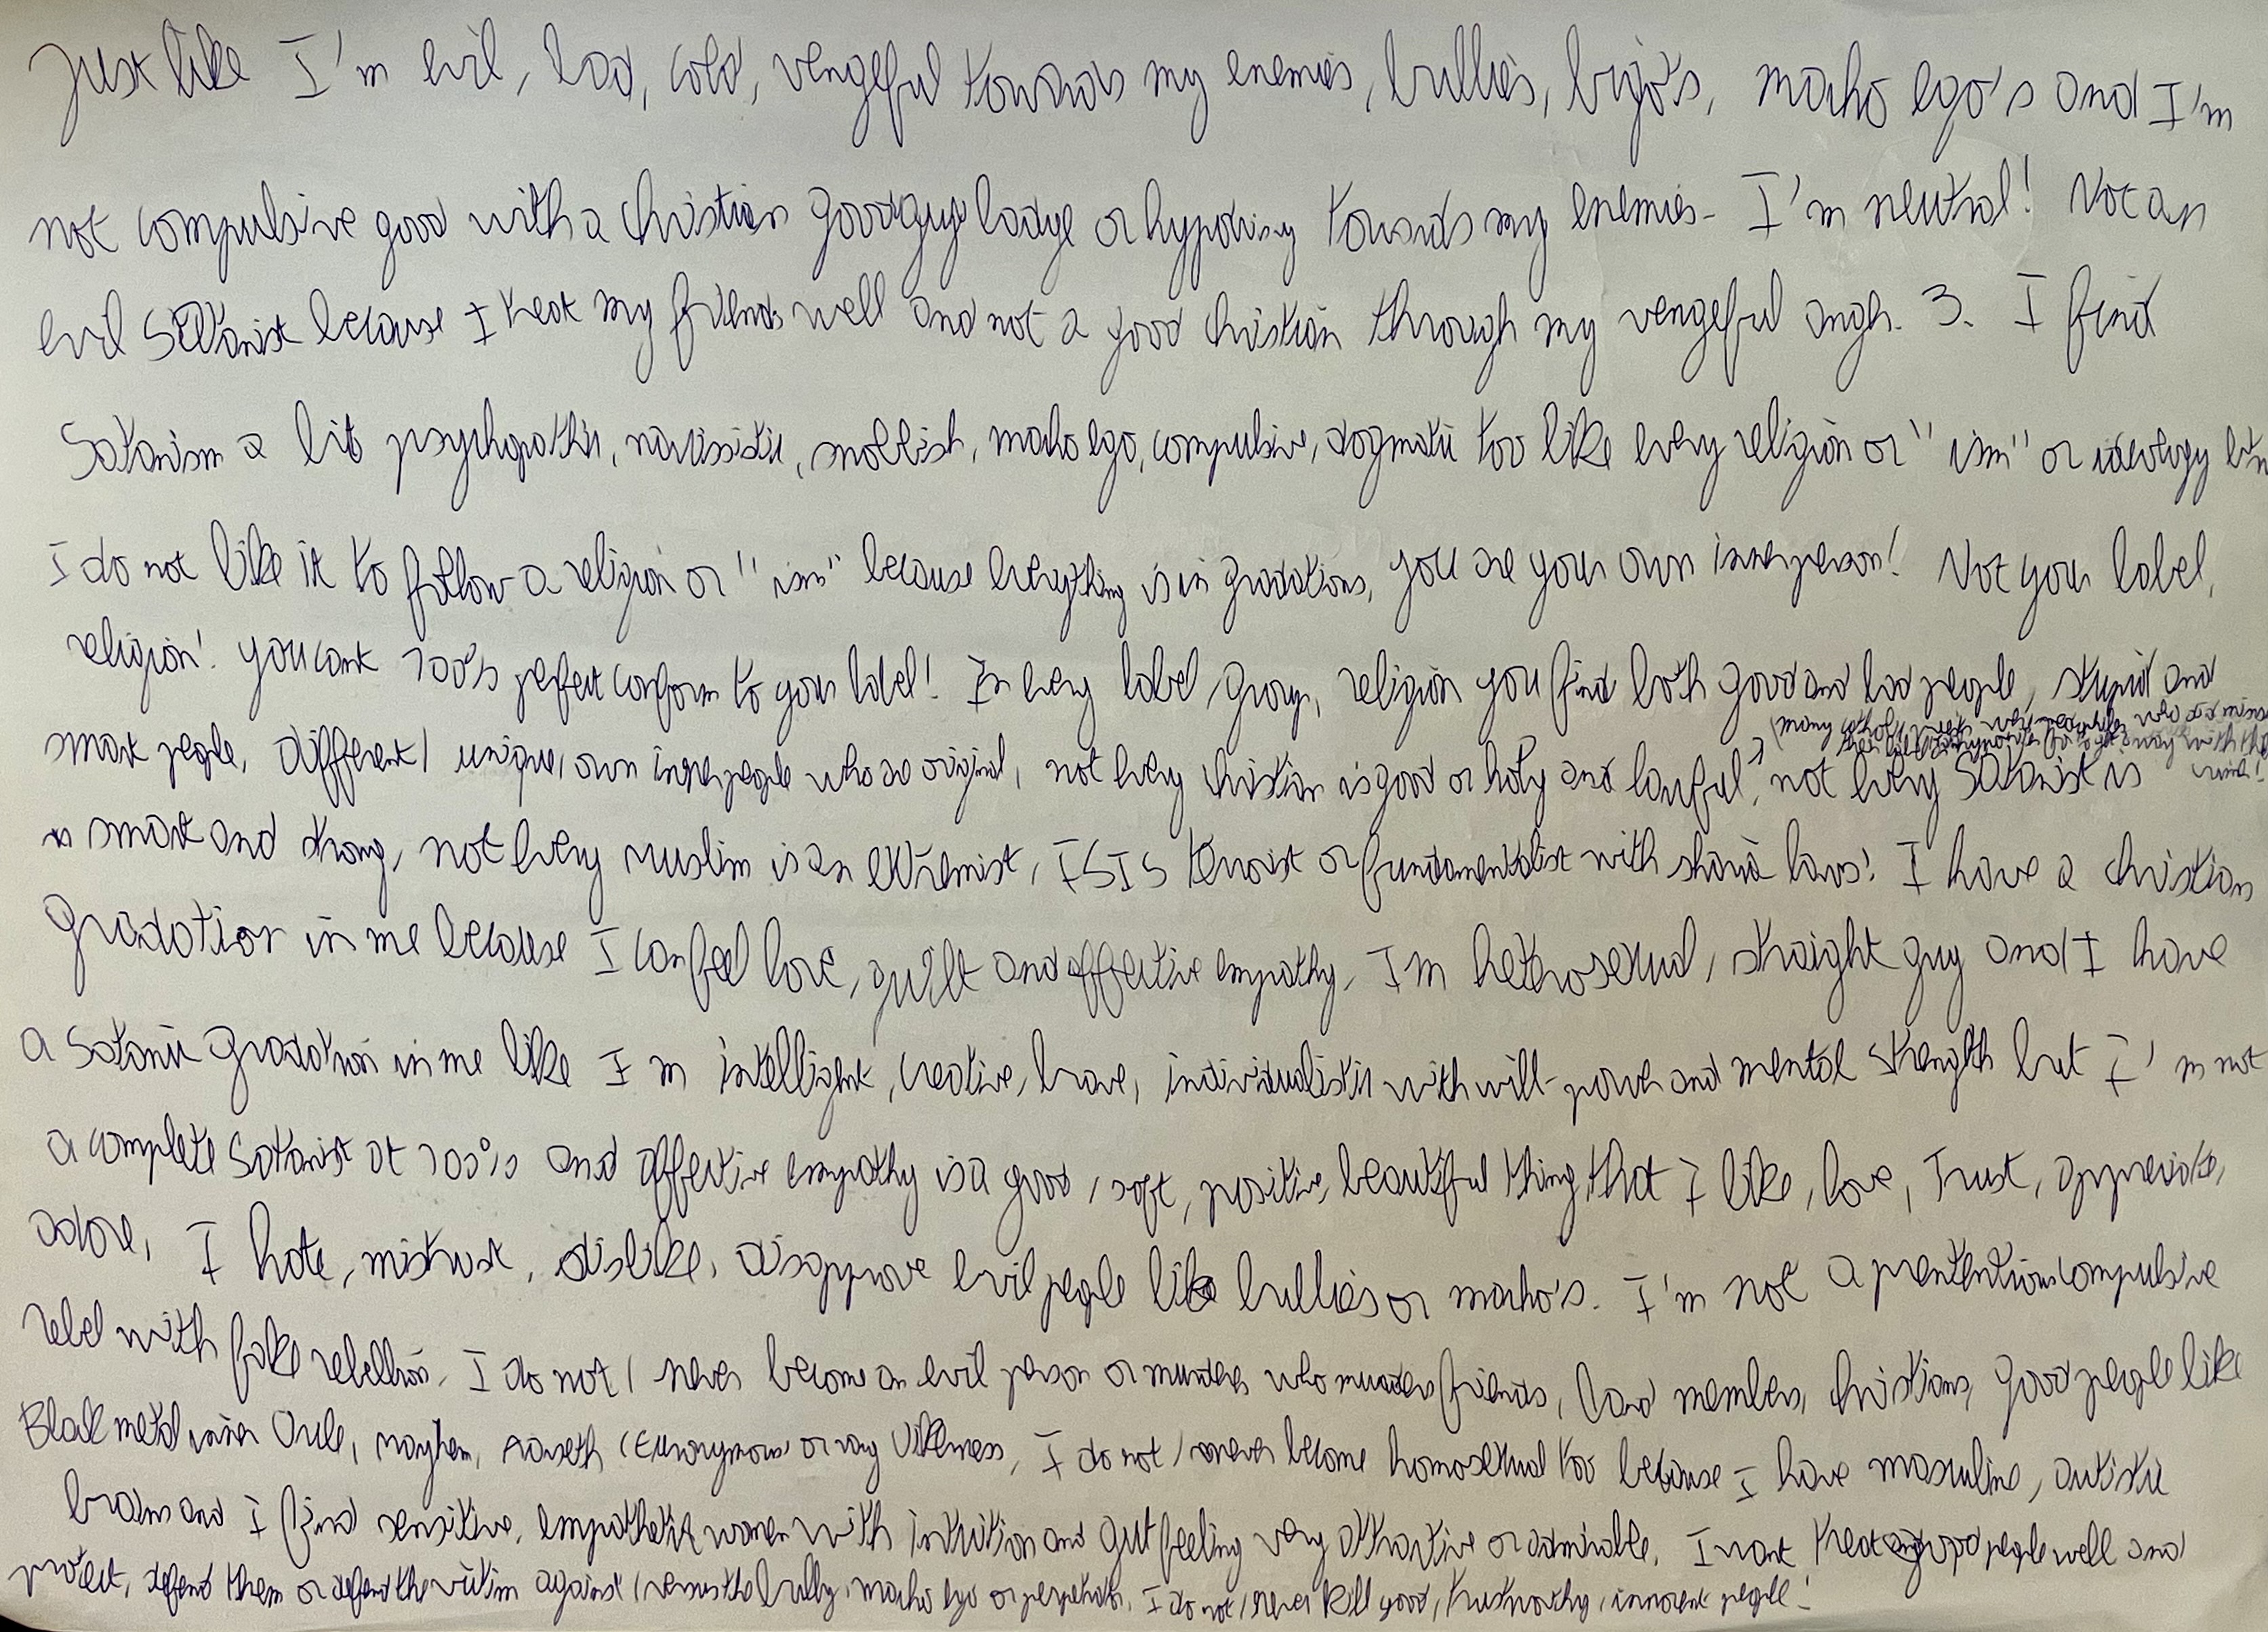 Just like I'm evil, bad, cold, vengeful towards my enemies, bullies, bigots, macho ego's and I'm
not compulsive good with a christian goodguy badge or hypocrisy towards my enemies. I'm neutral! Not an
evil Satanist because I treat my friends well and not a good christian through my vengeful angr. 3. I find
Satanism a bit psychopathic, narcissistic, snobbish, macho ego, compulsive, dogmatic too like every religion or "ism" or ideology
I do not like it to follow a religion or "ism" because everything is in gradations, you are your own innerperson! Not your label,
religion! you cant 100% perfect conform to your label! In every label, group, religion you find both good and bad people, stupid and
(many who
to get away with
smart people, different/unique/own innerpeople who are original, not every christian is good or holy and lawful, not every Satanist is
smart and strong, not every muslim is an extremist, ISIS terrorist or fundamentalist with sharia laws! I have a christian
gradation in me because I can feel love, guilt and affective empathy, I'm heterosexual, straight guy and I have
a satanic gradation in me like I'm intelligent, creative, brave, individualistic with will-power and mental strength but I'm not
a complete Satanist at 100% and affective empathy is a good, soft, positive, beautiful thing that I like, love, trust, appreciate,
adore, I hate, mistrust, dislike, disapprove evil people like bullies or macho's. I'm not a prententious compulsive
rebel with fake rebellion. I do not/never become an evil person or murderer who murders friends, band members, christians, good people like
Black metal inner Circle, mayhem, Aarseth (Euronymous) or varg Vikerness, I do not/never become homosexual too because I have masculine, autistic
brains and I find sensitive, empathetic women with intuition and gutfeeling very attractive or admirable. I want treat good people well and
protect, defend them or defend the victim against/versus the bully, macho ego or perpetrator. I do not/never kill good, trustworthy, innocent people!